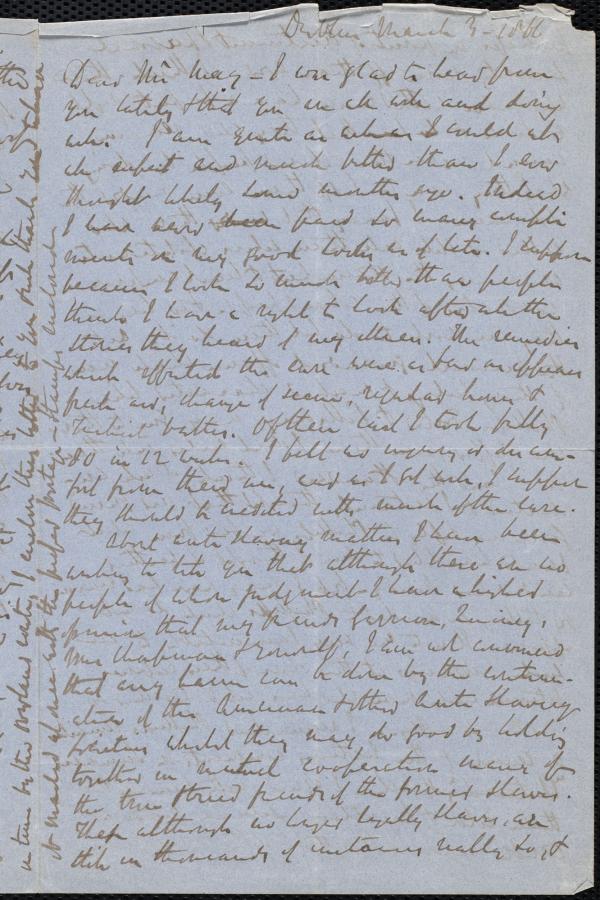 Dublin March 3 - 1866
Dear Mr May - I was glad to hear from
you lately & that you are all well and doing
well. I am quite as well as I could at
all expect and much better than I ever
thought likely some months ago. Indeed
I have never been paid so many compli
ments on my good looks as of late. I suppose
because I look so much better than people
think I have a right to look after all the
stories they heard of my illness. The remedies
which effected the cure were as far as appears
fresh air, change of scene, regular hours &
Turkish baths. Of these last I took fully
80 in 22 weeks. I felt no injury or discom-
fort from their use, and as I got well, I suppose
they should be credited with much of the cure.
About anti Slavery matters I have been
wishing to tell you that although there are no
people of whose judgment I have a higher
opinion than my friends Garrison, Quincy,
Mrs Chapman & Yourself, I am not convinced
that any harm can be done by the continu-
ation of the American & other Anti Slavery
Societies whilst they may do good by holding
together in mutual cooperation many of
the true & tried friends of the former slaves.
These although no longer legally slaves, are
still in thousands of instances really so, &
in time by the Boston
it marked